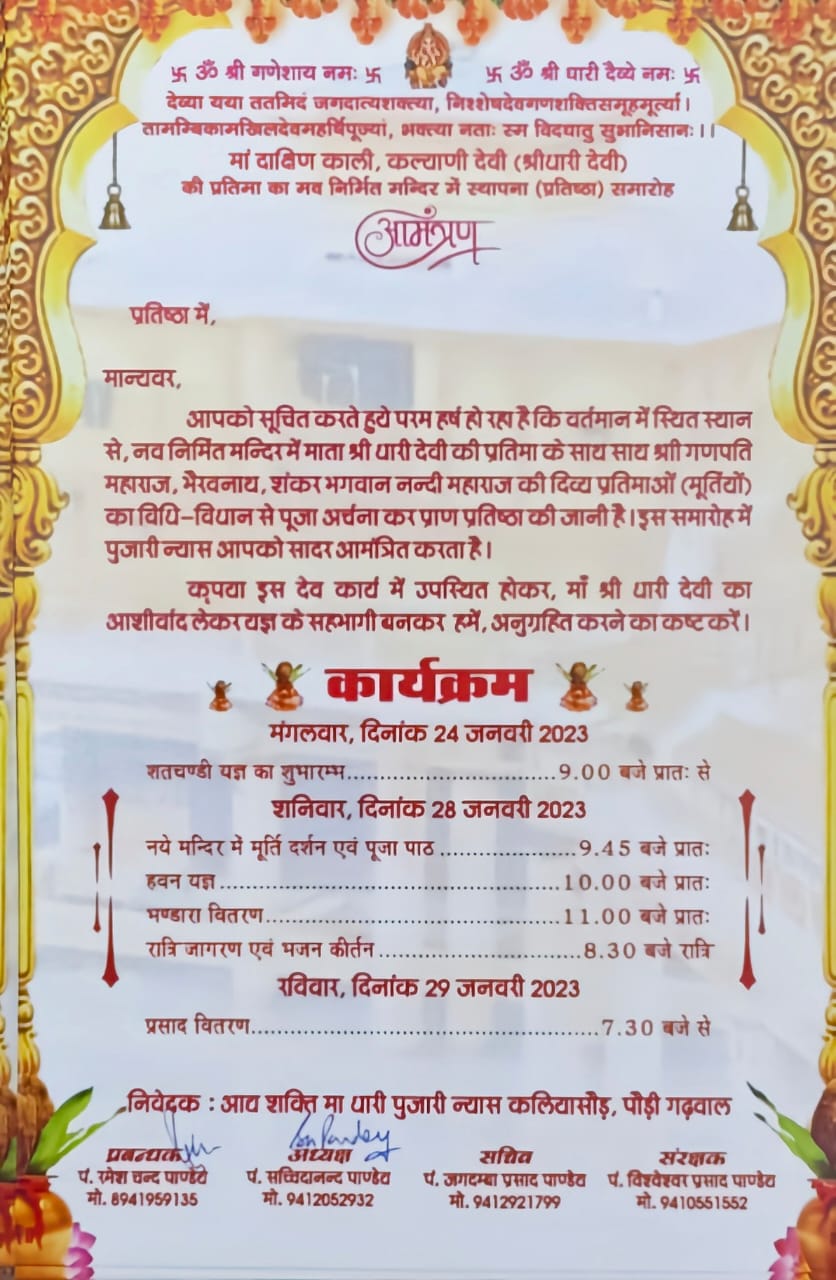 卐 ॐ श्री गणेशाय नमः 卐 卐 ॐ श्री धारी दैव्ये नमः 卐
देव्या यया ततमिदं जगदात्यशक्त्या, निश्शेषदेवगणशक्तिसमूहमूर्त्या।
तामम्बिकामखिलदेवमहर्षिपूज्यां, भक्त्या नताः स्म विदघातु सुभानिसानः।।
मां दाक्षिण काली, कल्याणी देवी (श्रीधारी देवी)
की प्रतिमा का मव निर्मित मन्दिर में स्थापना (प्रतिष्ठा) समारोह
आमंत्रण
प्रतिष्ठा में,
मान्यवर,
आपको सूचित करते हुये परम हर्ष हो रहा है कि वर्तमान में स्थित स्थान
से, नव निर्मित मन्दिर में माता श्री धारी देवी की प्रतिमा के साथ साथ श्री गणपति
महाराज, भैरवनाथ, शंकर भगवान नन्दी महाराज की दिव्य प्रतिमाओं (मूर्तियों)
का विधि-विधान से पूजा अर्चना कर प्राण प्रतिष्ठा की जानी है। इस समारोह में
पुजारी न्यास आपको सादर आमंत्रित करता है।
कृपया इस देव कार्य में उपस्थित होकर, माँ श्री धारी देवी का
आशीर्वाद लेकर यज्ञ के सहभागी बनकर हमें, अनुग्रहित करने का कष्ट करें।
कार्यक्रम
मंगलवार, दिनांक 24 जनवरी 2023
शतचण्डी यज्ञ का शुभारम्भ..............................9.00 बजे प्रातः से
शनिवार, दिनांक 28 जनवरी 2023
नये मन्दिर में मूर्ति दर्शन एवं पूजा पाठ....................9.45 बजे प्रातः
हवन यज्ञ..................................................10.00 बजे प्रातः
भण्डारा वितरण...........................................11.00 बजे प्रातः
रात्रि जागरण एवं भजन कीर्तन.............................8.30 बजे रात्रि
रविवार, दिनांक 29 जनवरी 2023
प्रसाद वितरण..................................................7.30 बजे से
निवेदक : आद्य शक्ति मा धारी पुजारी न्यास कलियासौड़, पौड़ी गढ़वाल
प्रबन्धक अध्यक्ष सचिव संरक्षक
पं. रमेश चन्द पाण्डेय पं. सच्चिदानन्द पाण्डेय पं. जगदम्बा प्रसाद पाण्डेय पं. विश्वेश्वर प्रसाद पाण्डेय
मो. 8941959135 मो. 9412052932 मो. 9412921799 मो. 9410551552